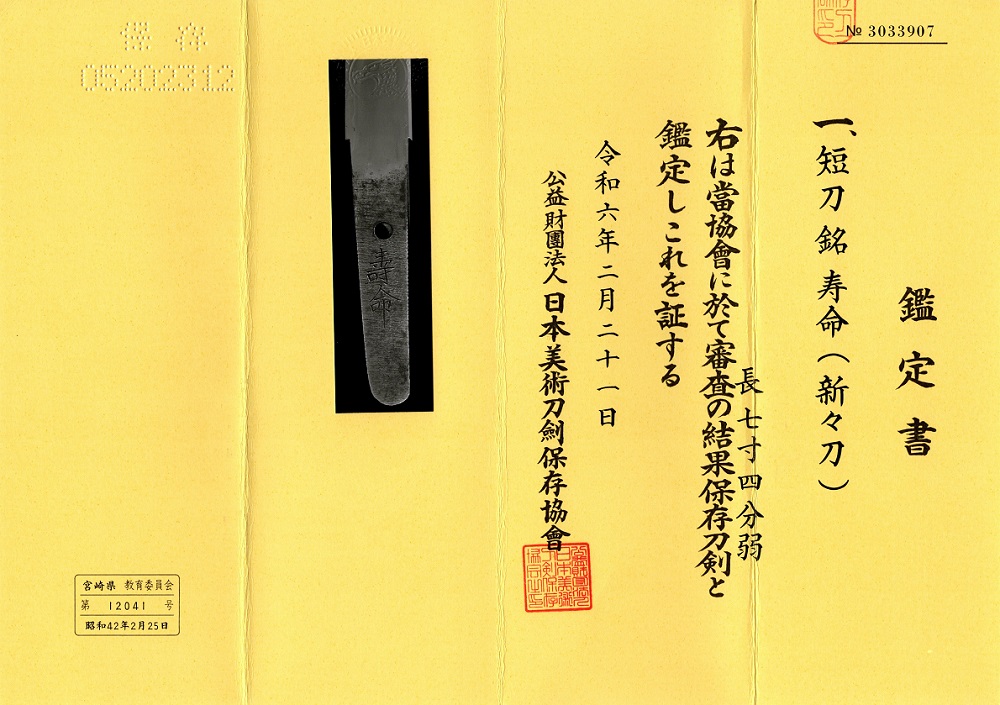 № 3033907
鑑定書
一、短刀 銘 寿命（新々刀）
長 七寸四分弱
右は當協會に於て審査の結果保存刀剣と
鑑定しこれを証する
令和六年二月二十一日
公益財團法人 日本美術刀劍保存協會
寿命
保存
05202312
宮崎県 教育委員会
第 12041 号
昭和42年2月25日